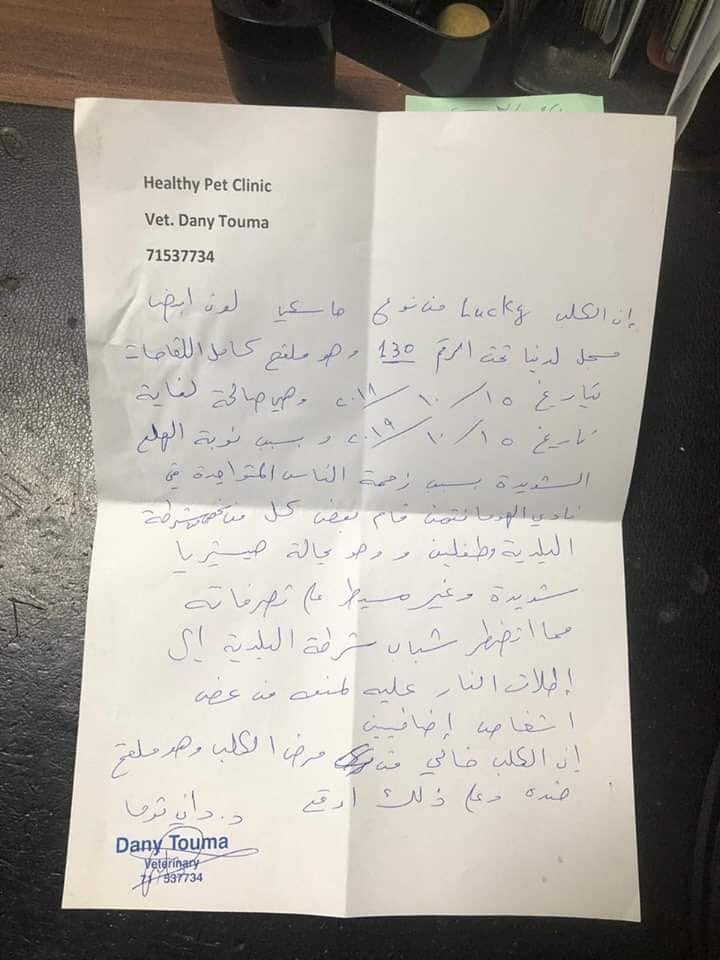 Healthy Pet Clinic
Vet. Dany Touma
71537734
إن الكلب Lucky من نوع هاسكي لون ابيض
مسجل لدينا تحت الرقم 130 وهو ملقح كامل اللقاحات
بتاريخ ١٥/١٠/٢٠١٨ وهي صالحة لغاية
تاريخ ١٥/١٠/٢٠١٩ و بسبب نوبة الهلع
الشديدة بسبب زحمة الناس المتواجدة في
نادي قام بعض كل من شرطة
البلدية وطفلين وهو بحالة هيستيريا
شديدة وغير مسيطر على تصرفاته
مما اتضطر شباب شرطة البلدية إلى
إطلاق النار عليه لمنعه من عض
اشخاص إضافيين
إن الكلب خالي من مرض الكلب وهو ملقح
ضده وعلى ذلك اوقع د. داني توما
Dany Touma
Veterinary
71 537734